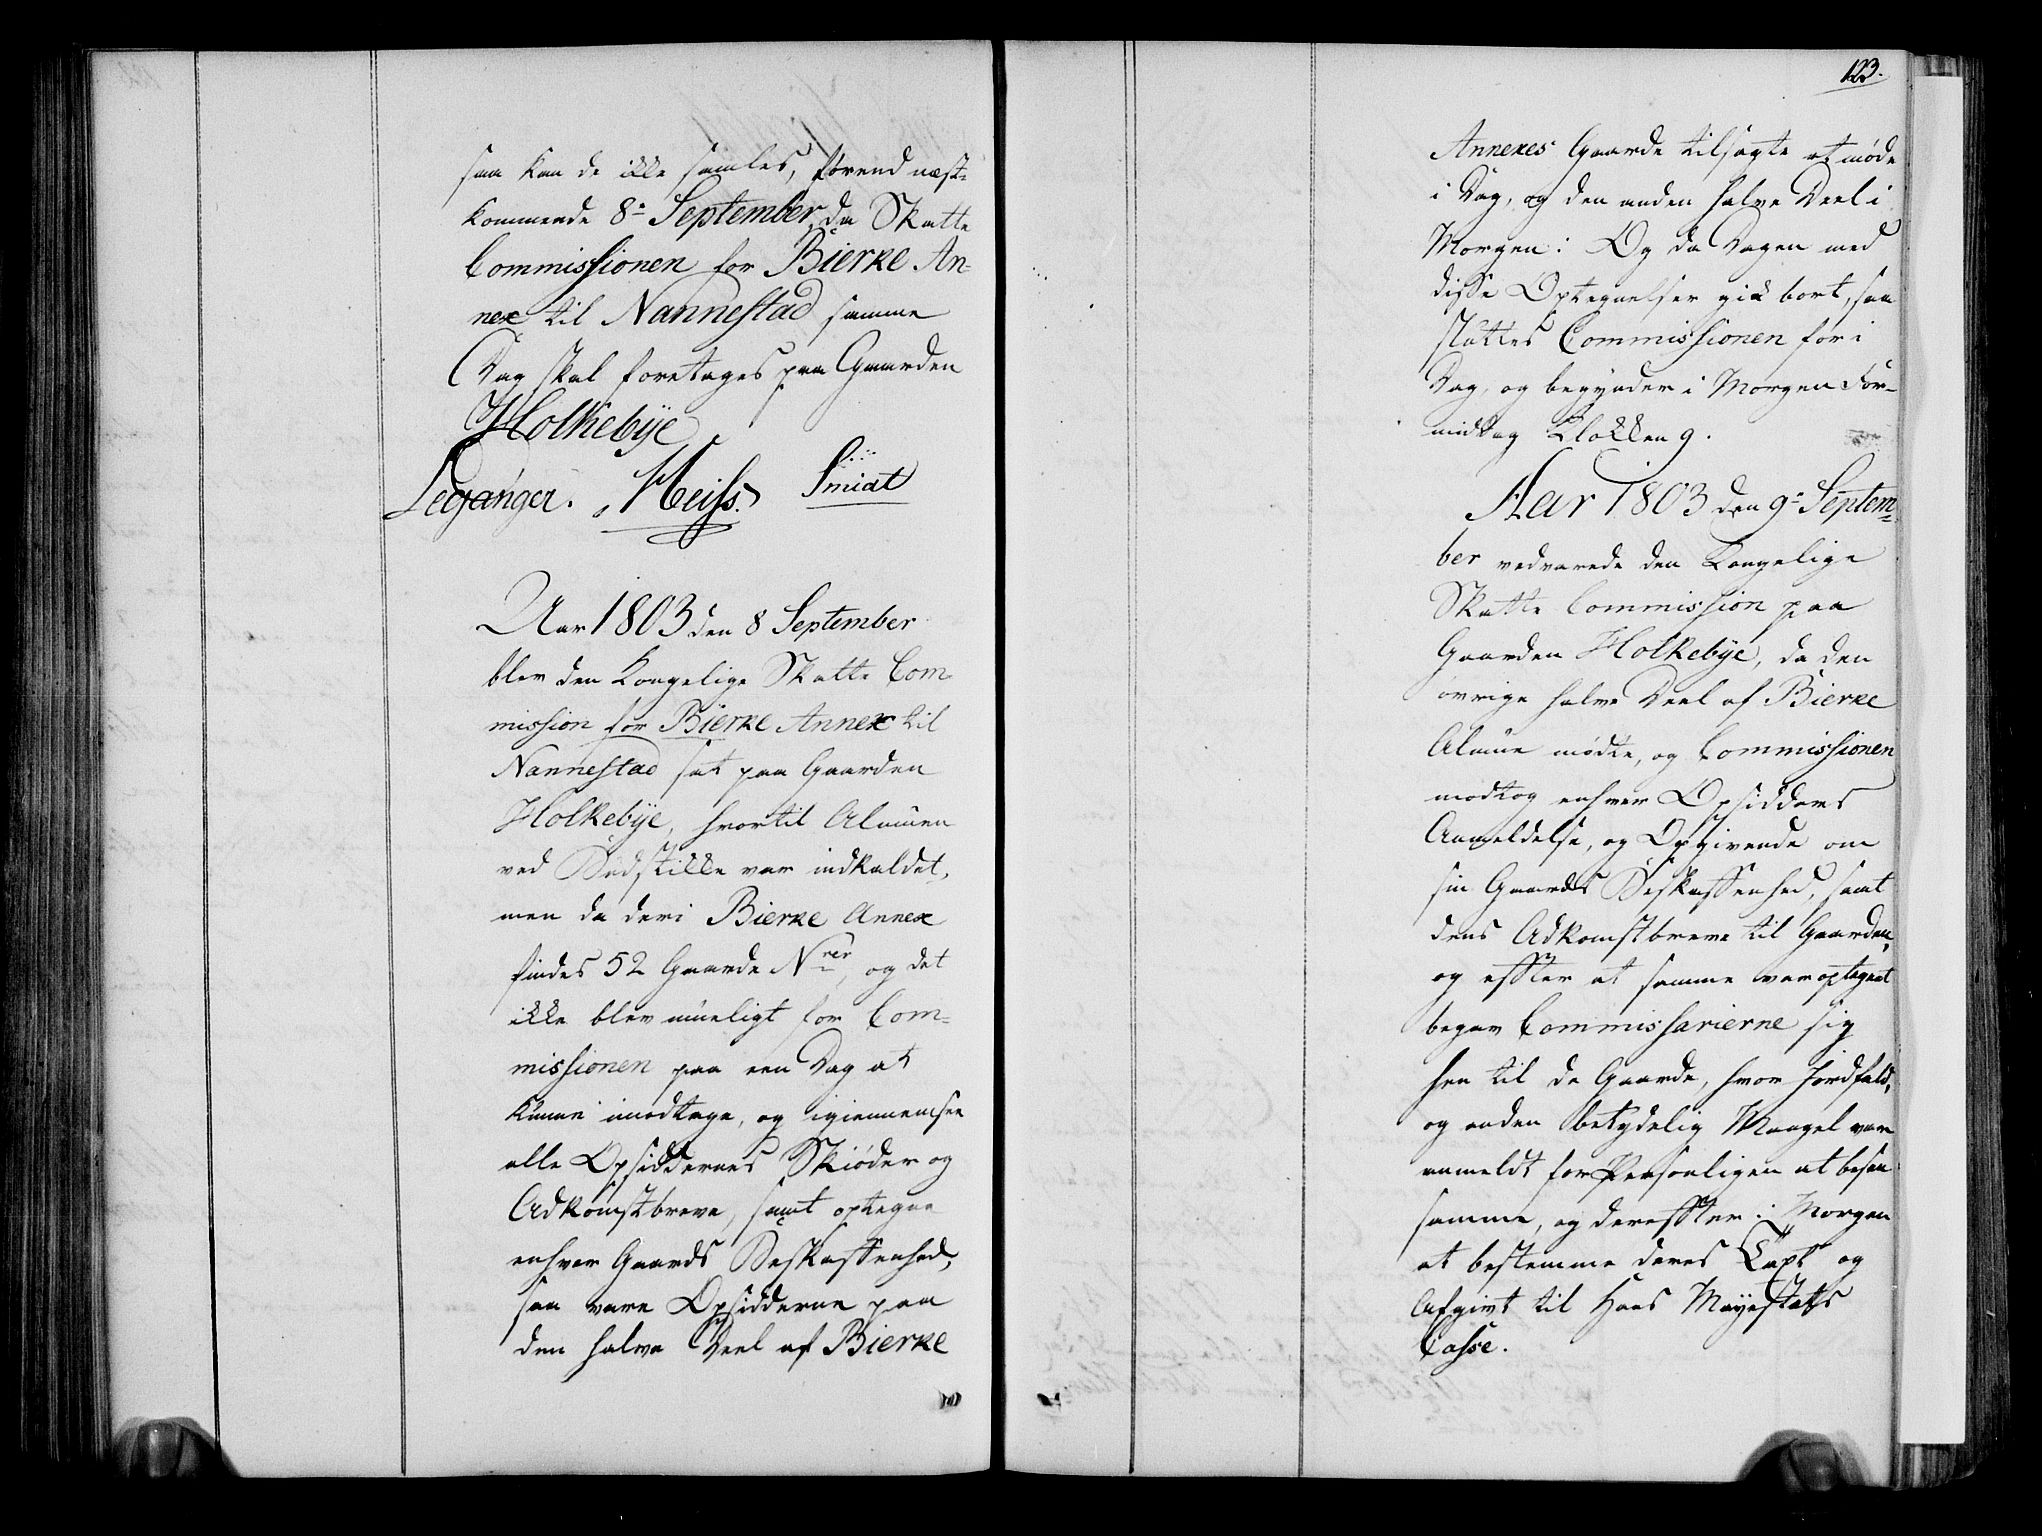 saa kan de ikke samles, førend næst-
kommende 8de September, da Skatte
Commissionen for Bierke An-
nex til Nannestad samme
Dag skal foretages paa Gaarden
Holkebÿe
Leganger. Heiss. Smidt
Aar 1803 den 8 September
blev den Kongelige Skatte Com-
mission for Bierke Annex til
Nannestad sat paa Gaarden
Holkebÿe, hvortil Almuen
ved Budstikke var indkaldet,
men da deri Bierke Annex
findes 52 Gaarde Nrer, og det
ikke blev mueligt for Com-
missionen paa een Dag at
kunne imodtage, og igiennemsee
alle Opsiddernes Skiøder og
Adkomstbreve, samt optegne
enhver Gaards Beskaffenhed,
saa vare Opsidderne paa
den halve Deel af Bierke
123.
Annexes Gaarde tilsagte at møde
i Dag, og den anden halve Deel i
Morgen: Og da Dagen med
disse Optegnelser gik bort, saa
sluttes Commissionen for i
Dag, og begynder i Morgen For-
middag Klokken 9.
Aar 1803 den 9de Septem-
ber vedvarede den Kongelige
Skatte Commission paa
Gaarden Holkebÿe, da den
øvrige halve Deel af Bierke
Almue mødte, og Commissionen
modtog enhver Opsidders
Anmeldelse, og Opgivende om
sin Gaards Beskaffenhed, samt
dens Adkomstbreve til Gaarden,
og efter at samme var optegnet
begav Commissarierne sig
hen til de Gaarde, hvor Jordfald,
og anden betydelig Mangel var
anmeldt for Personligen at besee
samme, og derefter i Morgen
at bestemme deres Taxt og
Afgivt til Hans Mayestæts
Casse.